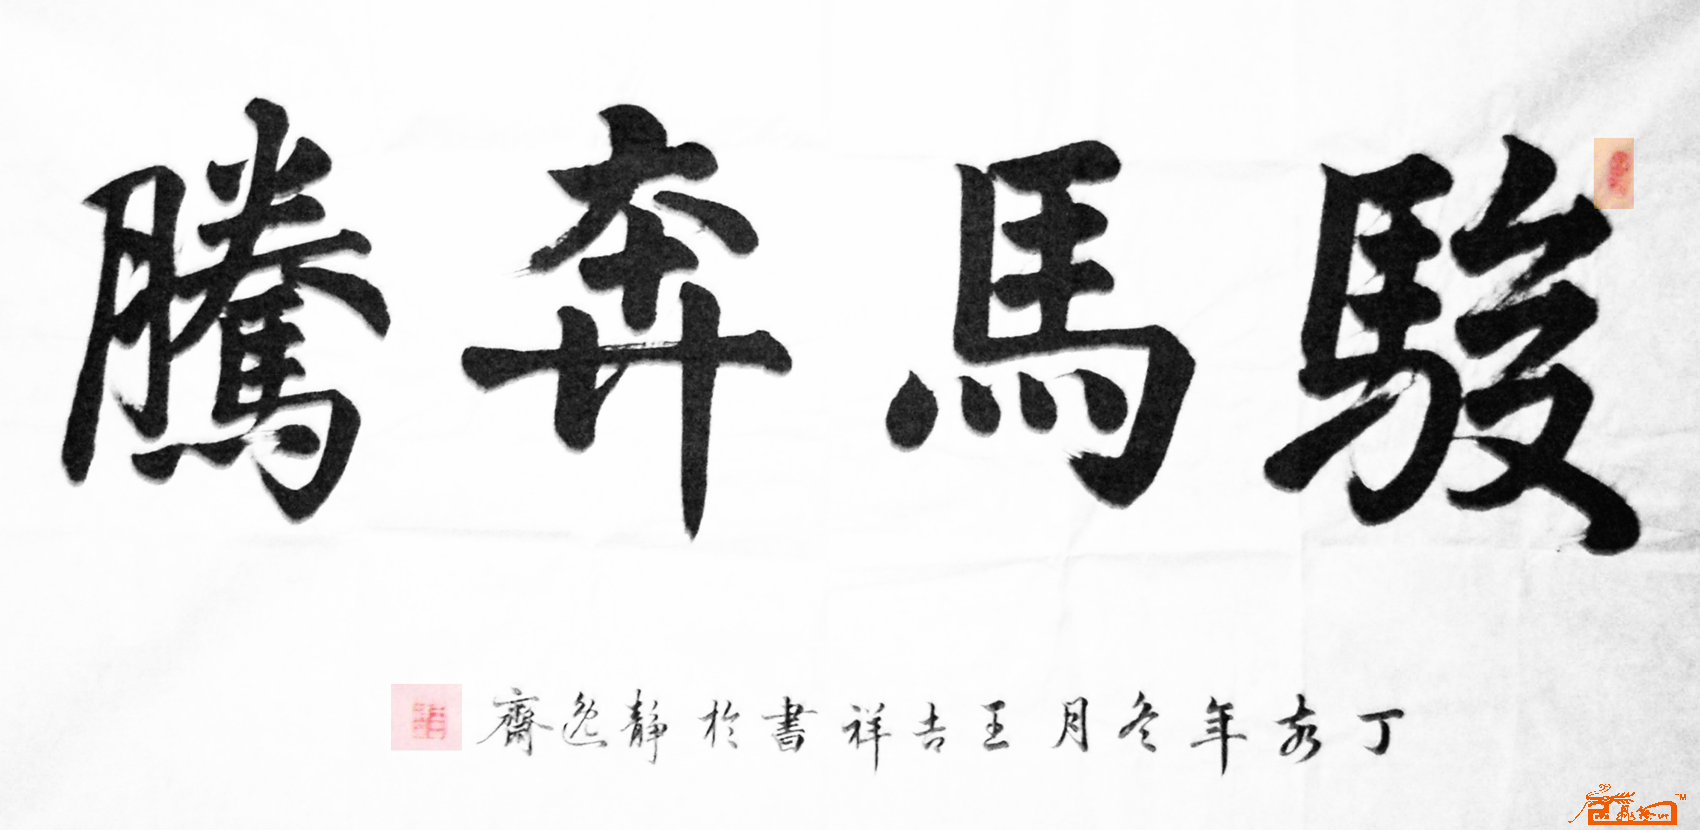 駿馬奔騰
丁亥年冬月王吉祥書於靜逸齋